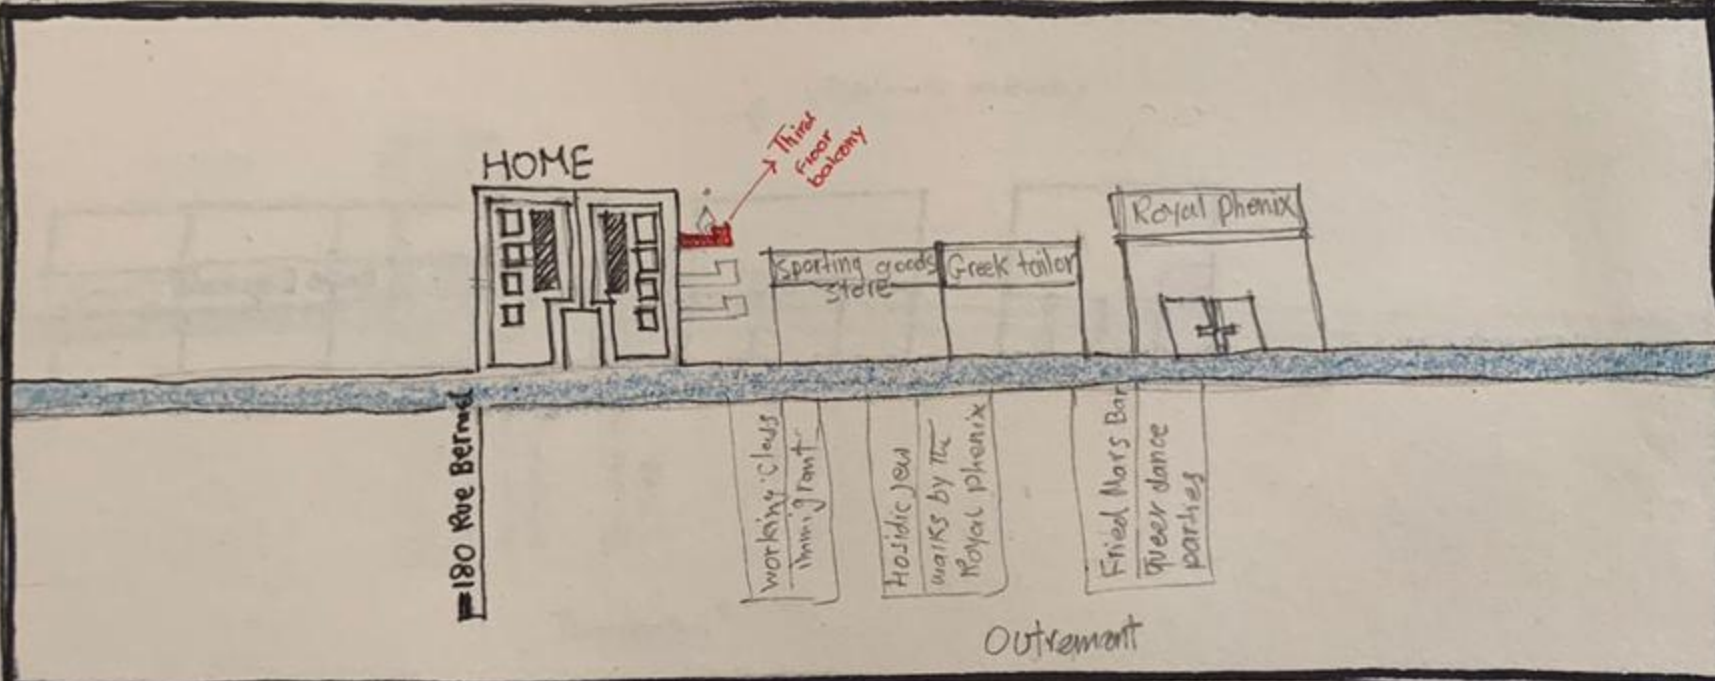 HOME
Third
Floor
balcony
Sporting goods
store
Greek tailor
Royal Phenix
180 Rue Bernad
working Class
immigrant
Hasidic Jew
walks by the
Royal phenix
Fried Mars Bar
queer dance
parties
Outremont